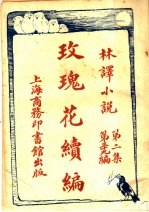 林譯小說
第二集
第五編
玫瑰花續編
上海商務印書館出版